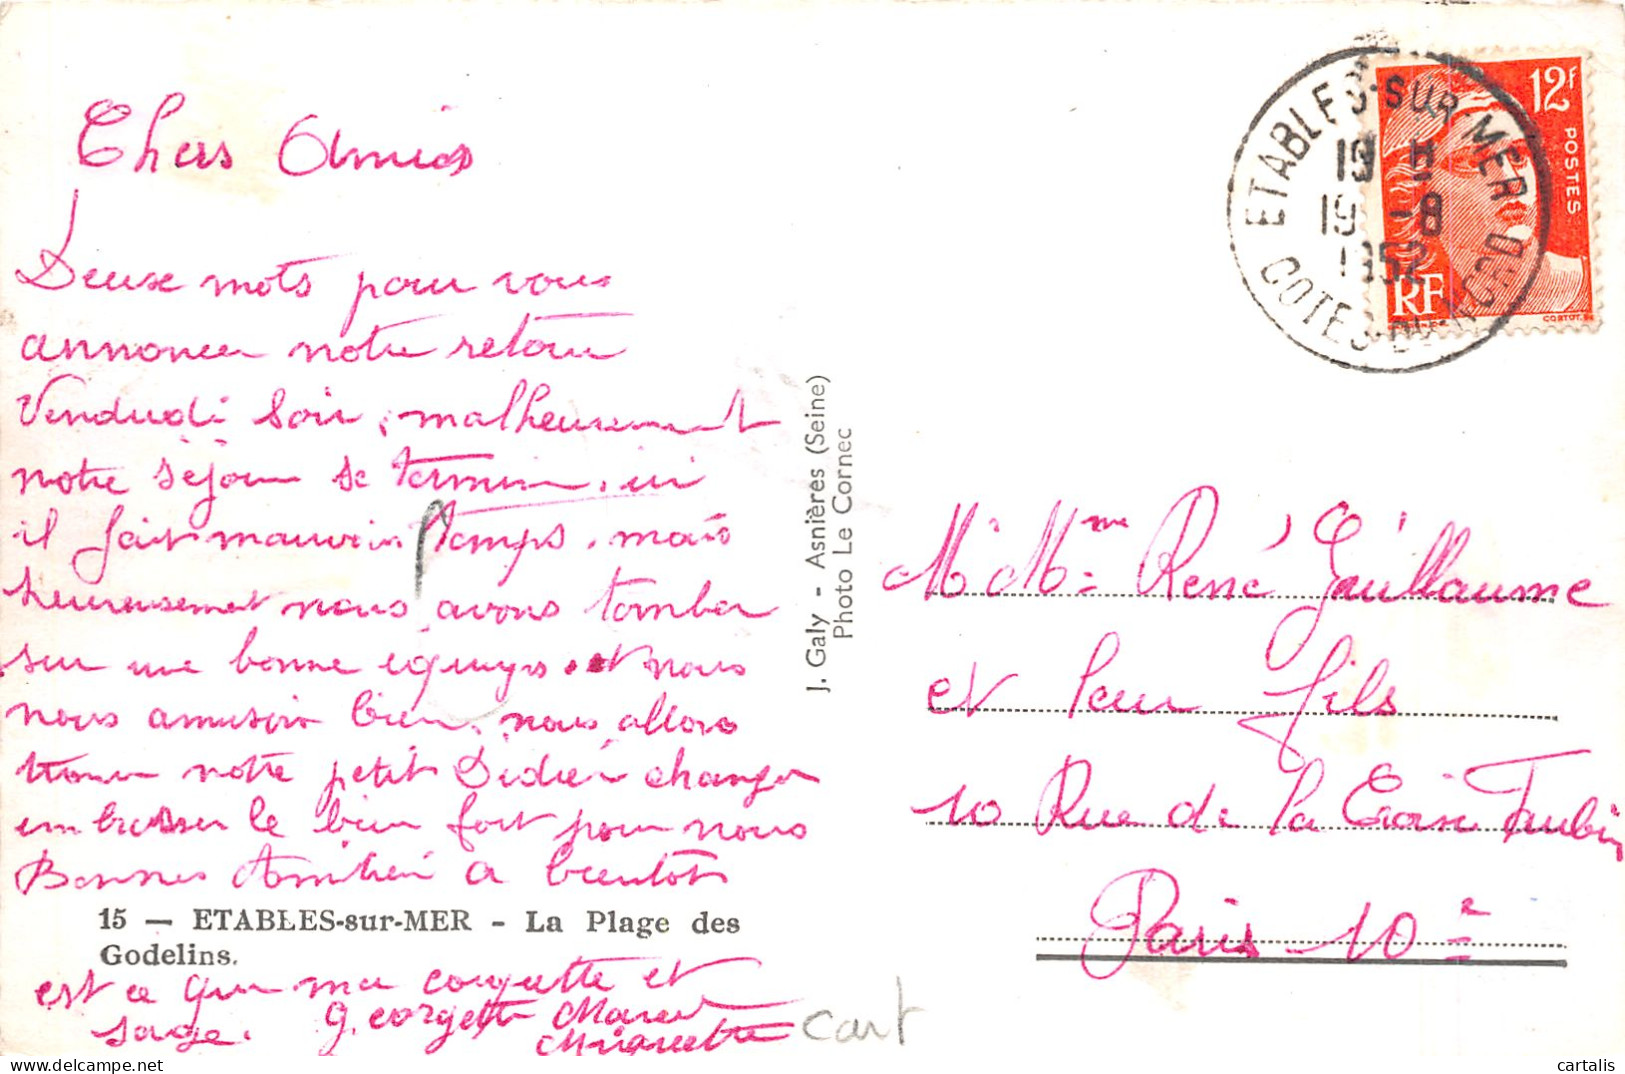 Chers Amis
Deux mots pour vous
annoncer notre retour
Vendredi soir, malheureusement
notre séjour se termine, ici
il fait mauvais temps, mais
heureusement nous avons tomber
sur une bonne équipe et nous
nous amusons bien, nous allons
trouver notre petit Didier changer
embrasser le bien fort pour nous
Bonnes Amitiés a bientôt
15 — ETABLES-sur-MER - La Plage des
Godelins.
est ce que ma coquette et
sage. Georgette Marcel
J. Galy - Asnières (Seine)
Photo Le Cornec
ETABLES-SUR-MER
19 H
19 -8
1952
COTES-DU-NORD
12F
POSTES
RF
M. Mme René Guillaume
et leur fils
10 Rue de la Grasse
Paris 10e
cart
cartalis